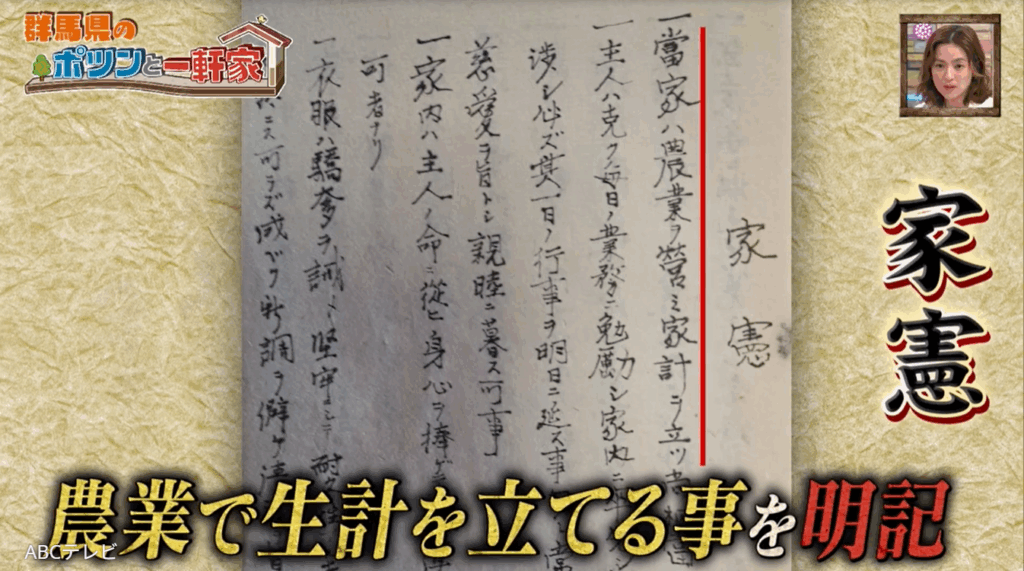 群馬県の
ポツンと一軒家
家憲
家憲
一當家ハ農業ヲ営ミ家計ヲ立ツ
一主人ハ克ク毎日ノ業務ニ勉励シ家内ニ
渉シ必ズ其一日ノ行事ヲ明日ニ延ス事
慈愛ヲ旨トシ親睦ニ暮ス可事
一家内ハ主人ノ命ニ従ヒ身心ヲ捧ゲ
可者ナリ
一衣服ハ驕奢ヲ誡メ堅牢ニシテ耐久
ニス可ラズ成ベク新調ヲ避ケ
農業で生計を立てる事を明記
ABCテレビ